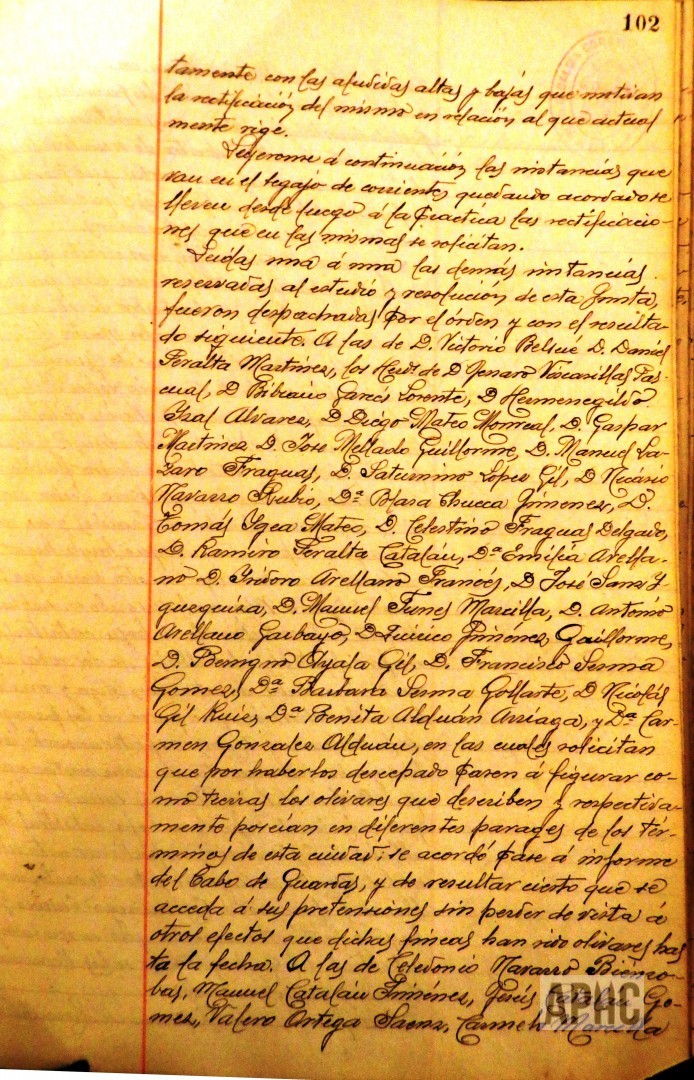 102
tamente con las aludidas altas y bajas que motivan
la rectificación del mismo en relación al que actual
mente rige.
Leyeronse á continuación las instancias que
van en el legajo de corrientes, quedando acordado se
lleven desde luego á la práctica las rectificacio-
nes que en las mismas se solicitan.
Leidas una á una las demás instancias
reservadas al estudio y resolución de esta Junta,
fueron despachadas por el órden y con el resulta-
do siguiente. A las de D. Victorio Belsué D. Daniel
Peralta Martinez, los Hers. de D Jenaro Vicarillas Pas-
cual, D Bibiano Garcés Lorente, D Hermenegildo
Yzal Alvarez, D Diego Mateo Monreal, D. Gaspar
Martinez D. Jose Mellado Guillorme, D. Manuel La-
zaro Fraguas, D. Saturnino Lopez Gil, D Nicásio
Navarro Rubio, Dª Blasa Chueca Gimenez, D.
Tomás Ygea Mateo, D. Celestino Fraguas Delgado,
D. Ramiro Peralta Catalán, Dª Emilia Arella-
no D. Isidoro Arellano Francés, D José Sanz Y
D. Manuel Funes Marcilla, D. Antonio
Arellano Garbayo, D Quirico Jiménez, Guillorme,
D. Benigno Ayala Gil, D. Francisco Serma
Gomez, Dª Barbara Serma Gollarte, D Nicolás
Gil Ruiz, Dª Benita Alduán Arriaga, y Dª Car-
men Gonzalez Alduán, en las cuales solicitan
que por haberlos descepado pasen á figurar co-
mo tierras los olivares que describen y respectiva-
mente poseían en diferentes parages de los tér-
minos de esta ciudad; se acordó pase á informe
del Cabo de Guardas, y de resultar cierto que se
acceda á sus pretensiones sin perder de vista á
otros efectos que dichas fincas han sido olivares has
ta la fecha. A las de Celedonio Navarro Bienzo-
bas, Manuel Catalán Jiménez, Jesús Catalán Go-
mez, Valero Ortega Saenz, Carmelo Marcilla
APHC